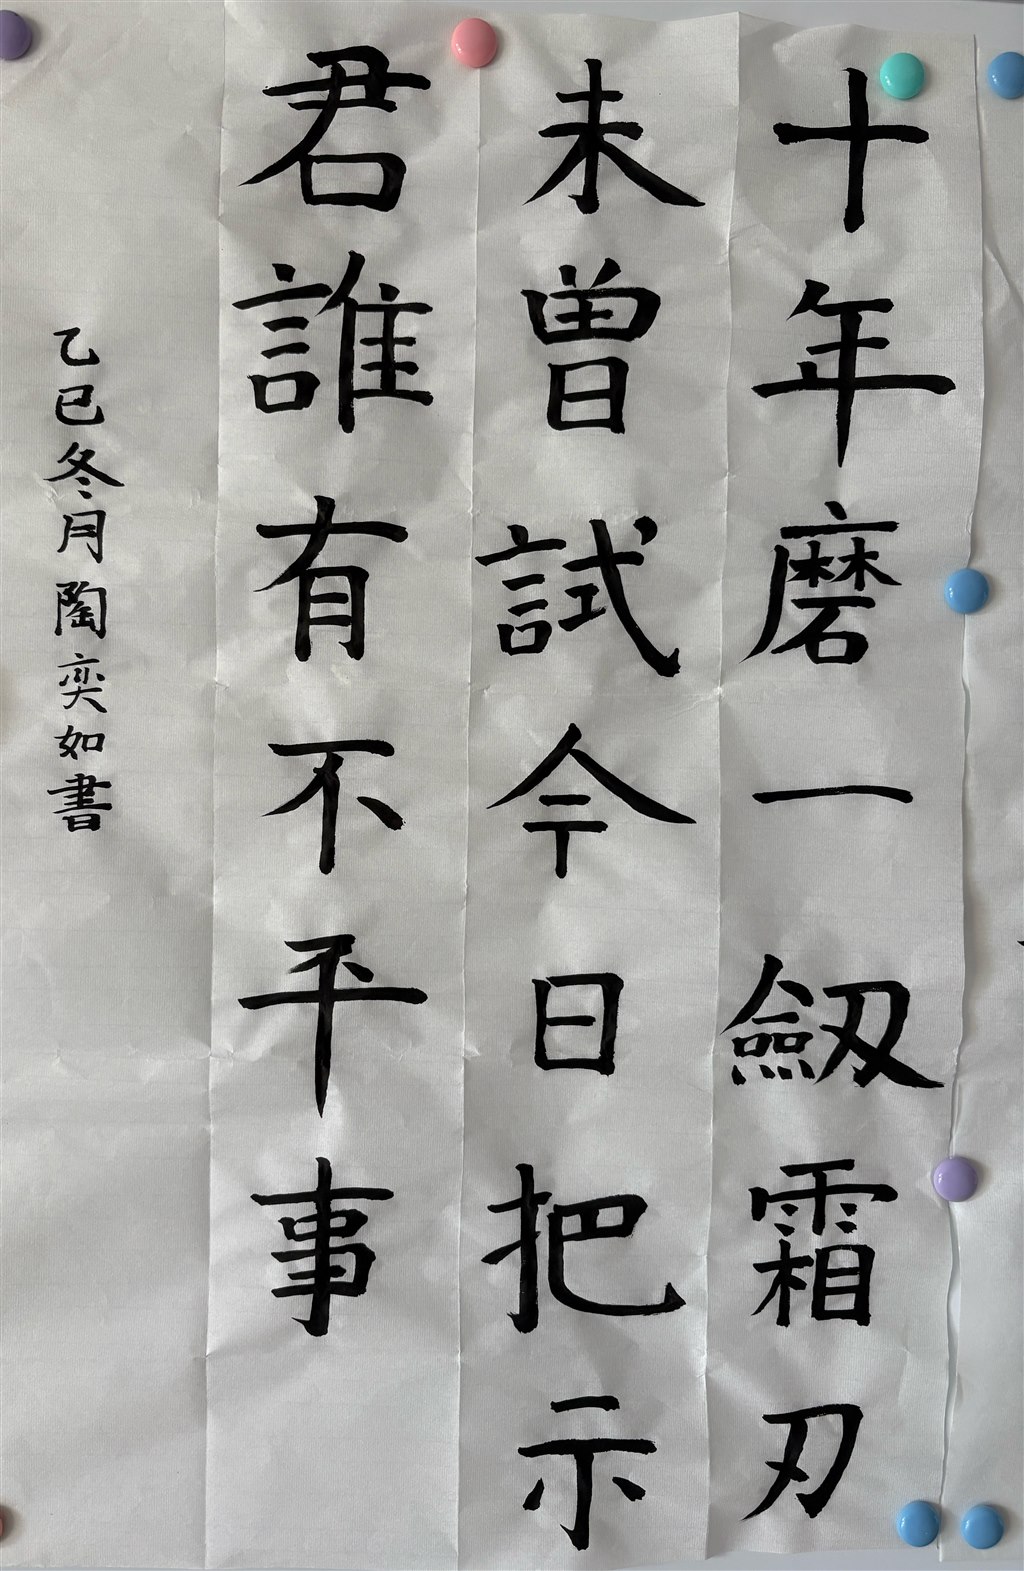 十年磨一劔霜刃
未曾試今日把示
君誰有不平事
乙巳冬月陶奕如書